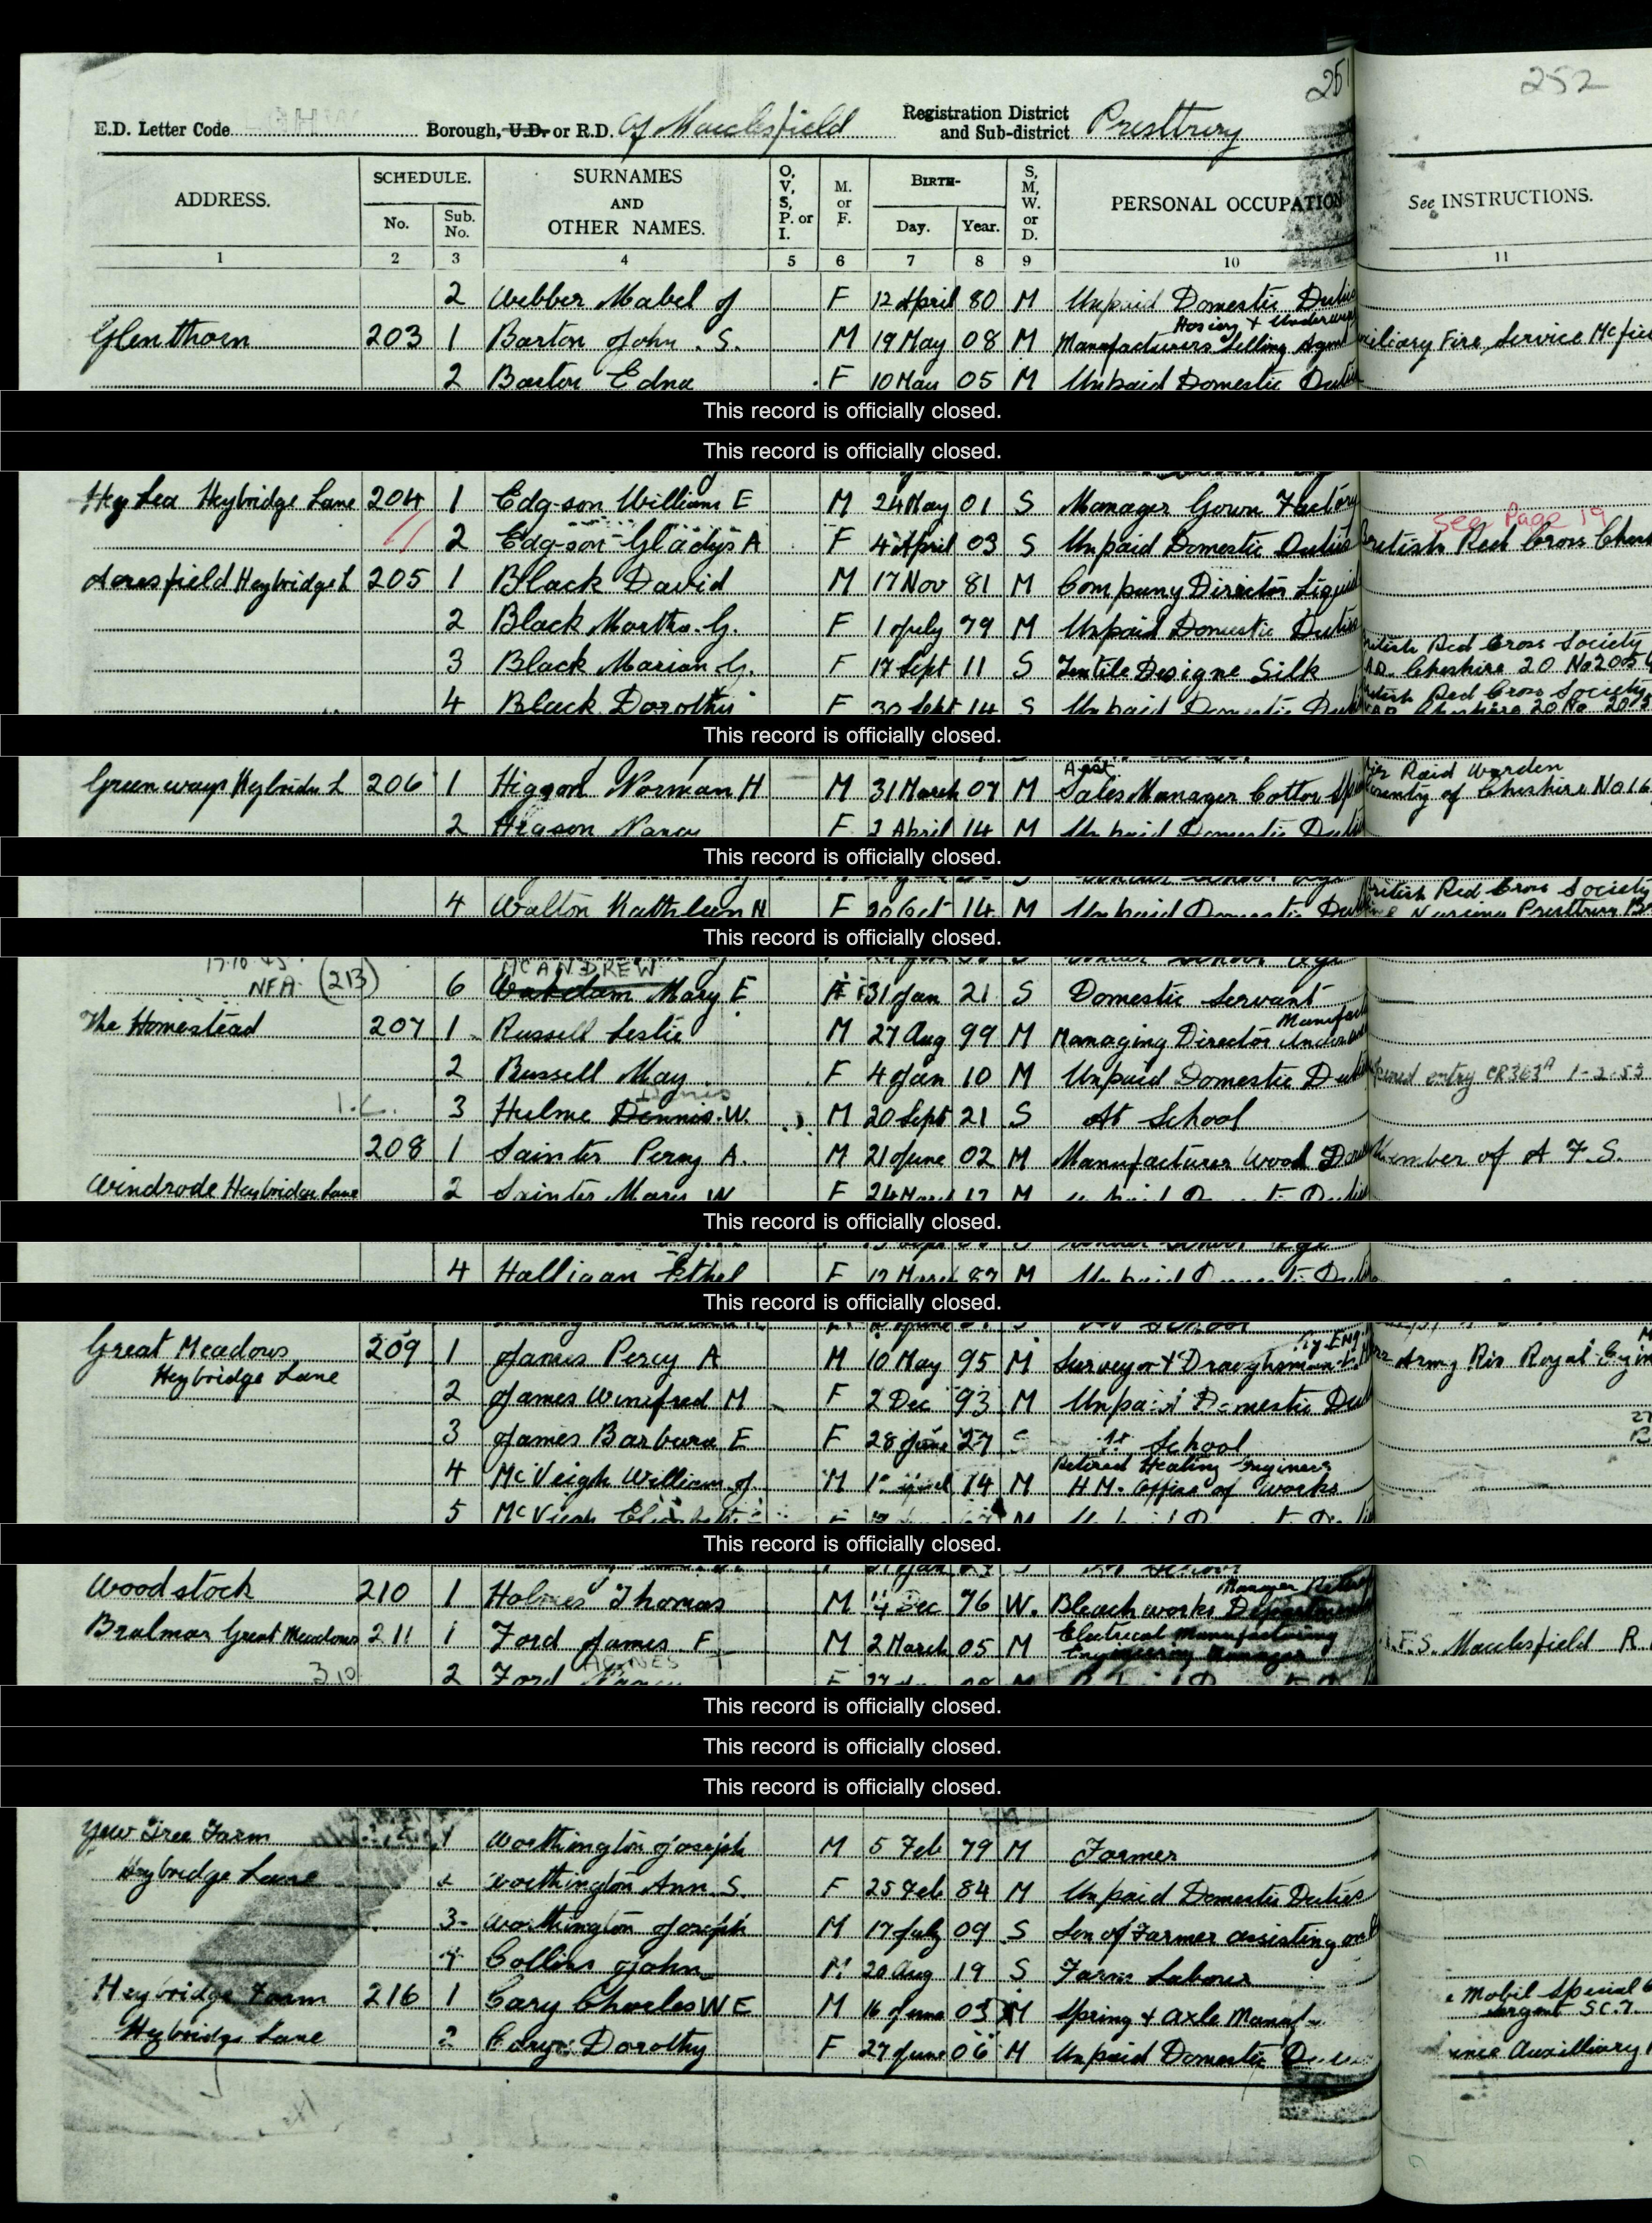 251
252
E.D. Letter Code Borough, U.D. or R.D. of Macclesfield Registration District and Sub-district Prestbury
ADDRESS. SCHEDULE. No. Sub. No. SURNAMES AND OTHER NAMES. O, V, S, P. or I. M. or F. BIRTH- Day. Year. S, M, W. or D. PERSONAL OCCUPATION See INSTRUCTIONS.
1 2 3 4 5 6 7 8 9 10 11
2 Webber Mabel J F 12 April 80 M Unpaid Domestic Duties
Hosiery & Underwear
Glenthorn 203 1 Barton John. S. M 19 May 08 M Manufacturers Selling Agent Auxiliary Fire Service
2 Barton Edna F 10 May 05 M Unpaid Domestic Duties
This record is officially closed.
This record is officially closed.
Hey Lea Heybridge Lane 204 1 Edgson William E M 24 May 01 S Manager Gown Factory
See Page 19
2 Edgson Gladys A F 4 April 03 S Unpaid Domestic Duties British Red Cross
Acresfield Heybridge L 205 1 Black David M 17 Nov 81 M Company Director
2 Black Martha. G. F 1 July 79 M Unpaid Domestic Duties
British Red Cross Society
3 Black Marian G. F 17 Sept 11 S Textile Designe Silk Cheshire 20 No 2005
British Red Cross Society
4 Black Dorothy F 30 Sept 14 S Unpaid Domestic Cheshire 20 No
This record is officially closed.
Air Raid Warden
Greenways Heybridge L 206 1 Higson Norman H M 31 March 07 M Sales Manager Cotton County of Cheshire No 16
2 Higson Nancy F 2 April 14 M Unpaid Domestic
This record is officially closed.
British Red Cross Society
4 Walton Kathleen N F 14 M Unpaid Domestic Nursing Prestbury
This record is officially closed.
MCANDREW
NFA (213) 6 Mary E F 31 Jan 21 S Domestic Servant
The Homestead 207 1 Russell Leslie M 27 Aug 99 M Managing Director
2 Russell May F 4 Jan 10 M Unpaid Domestic entry CR363A 1-2-53
3 Hulme Dennis. W. M 20 Sept 21 S At School
208 1 Sainter Percy A. M 21 June 02 M Manufacturer Wood Member of A F. S.
Windrode Heybridge Lane 2 Sainter Mary W F 24 March 12 M Unpaid
This record is officially closed.
4 Halligan Ethel F 12 March 87 M Unpaid
This record is officially closed.
Great Meadows 209 1 James Percy A M 10 May 95 M Surveyor & Draughtsman Army Res Royal
Heybridge Lane
2 James Winifred M F 2 Dec 93 M Unpaid Domestic
3 James Barbara E F 28 June 27 S At School
Retired Heating Engineer
4 McVeigh William J M 14 M H.M. Office of Works
5 McVeigh Elizabeth
This record is officially closed.
Woodstock 210 1 Holmes Thomas M Dec 76 W. Bleachworks
Electrical Manufacturing
Bralmar Great Meadows 211 1 Ford James F M 2 March 05 M Engineering Manager A.F.S. Macclesfield R
AGNES
2 Ford
This record is officially closed.
This record is officially closed.
This record is officially closed.
Yew Tree Farm 1 Worthington Joseph M 5 Feb 79 M Farmer
Heybridge Lane 2 Worthington Ann S. F 25 Feb 84 M Unpaid Domestic Duties
3 Worthington Joseph M 17 July 09 S Son of Farmer assisting on
4 Collins John M 20 Aug 19 S Farm Labourer
Heybridge Farm 216 1 Cary Charles W E M 16 June 03 M Spring & Axle Manuf Mobil Special
Sergent S.C.
Heybridge Lane 2 Cary Dorothy F 27 June 06 M Unpaid Domestic Auxilliary